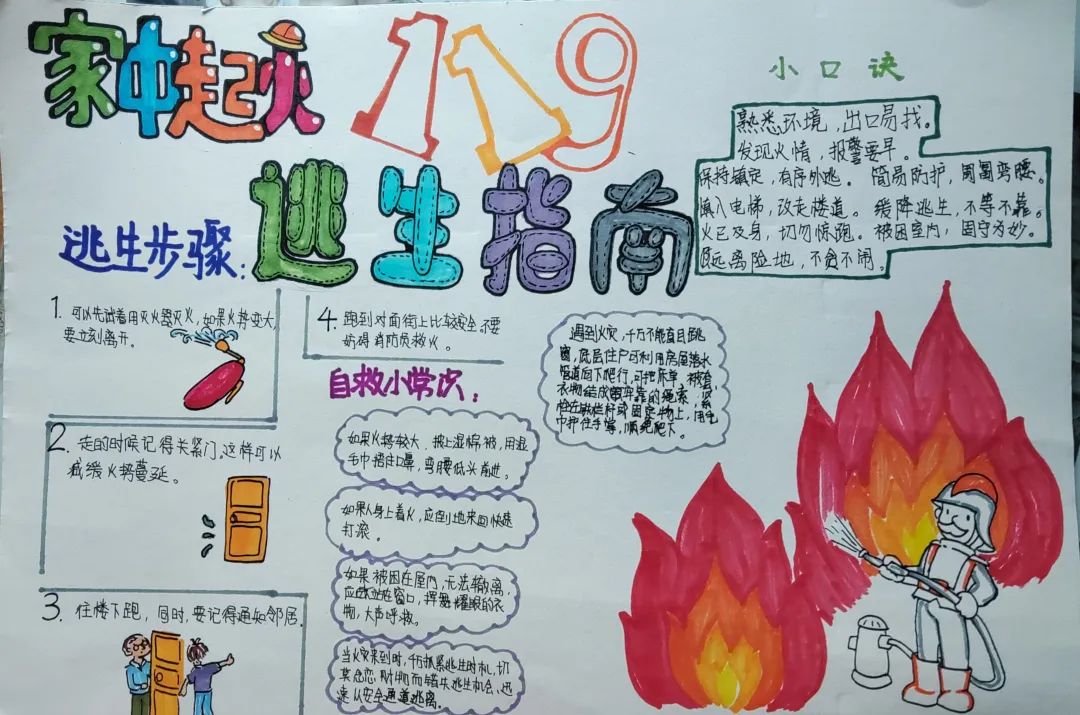 家中起火
119
逃生指南
小口诀
熟悉环境，出口易找。
发现火情，报警要早。
保持镇定，有序外逃。简易防护，匍匐弯腰。
慎入电梯，改走楼道。缓降逃生，不等不靠。
火已及身，切勿惊跑。被困室内，固守为妙。
远离险地，不贪不闹。
逃生步骤：
1. 可以先试着用灭火器灭火，如果火势变大，
要立刻离开。
2. 走的时候记得关紧门，这样可以
减缓火势蔓延。
3. 往楼下跑，同时，要记得通知邻居.
4. 跑到对面街上比较安全，不要
妨碍消防员救火。
自救小常识：
如果火势较大，披上湿棉被，用湿
毛巾捂住口鼻，弯腰低头前进。
如果人身上着火，应倒地来回快速
打滚。
如果被困在屋内，无法撤离，
应站在窗口，挥舞耀眼的衣
物，大声呼救。
当火灾来到时，千万抓紧逃生时机，切
莫念恋财物而错失逃生机会，迅
速从安全通道逃离。
遇到火灾，千万不能盲目跳
窗，低层住户可利用房屋落水
管道向下爬行，可把床单、被套、
衣物结成牢靠的绳索，
栓在铁栏杆或固定物上，用毛
巾护住手掌，顺绳爬下。